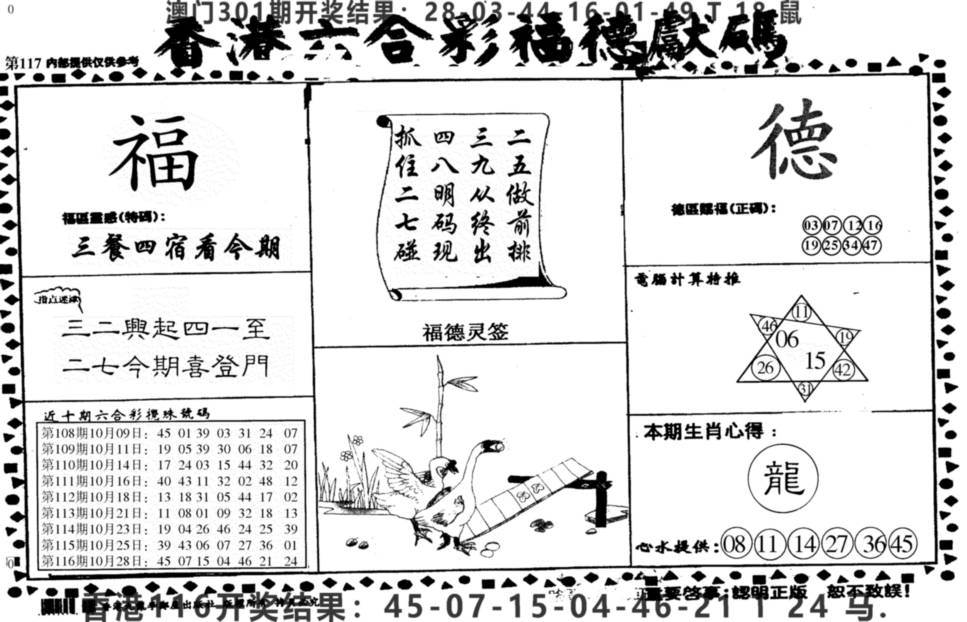 澳门301期开奖结果：28-03-44-16-01-49 T 18 鼠
香港六合彩福德献碼
第117 内部提供仅供参考
福
福區靈感(特碼)：
三餐四宿看今期
指点迷津
三二興起四一至
二七今期喜登門
近十期六合彩攪珠號碼
第108期10月09日：45 01 39 03 31 24 07
第109期10月11日：19 05 39 30 06 18 07
第110期10月14日：17 24 03 15 44 32 20
第111期10月16日：40 43 11 32 02 48 12
第112期10月18日：13 18 31 05 44 17 02
第113期10月21日：11 08 01 09 32 18 13
第114期10月23日：19 04 26 46 24 25 39
第115期10月25日：39 43 06 07 27 36 01
第116期10月28日：45 07 15 04 46 21 24
二五做前排
三九从终出
四八明码现
抓住二七碰
福德灵签
德
德區賜福(正碼)：
03 07 12 16
19 25 34 47
電腦計算特推
11
46 19
06
15
26 42
31
本期生肖心得：
龍
心水提供：08 11 14 27 36 45
重要啓事：認明正版 恕不致誤！
香港116开奖结果：45-07-15-04-46-21 T 24 马.